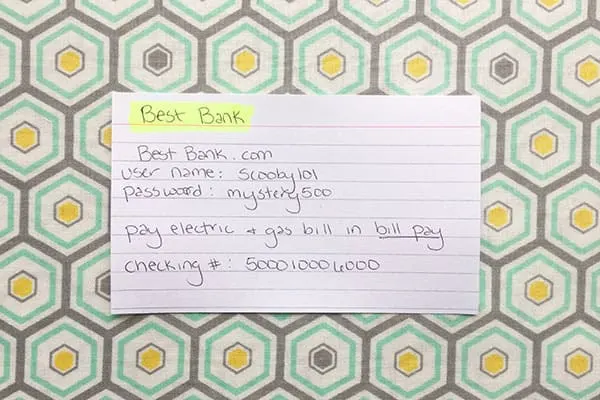 Best Bank
Best Bank.com
user name: Scooby101
password: mystery500
pay electric + gas bill in bill pay
checking #: 500010004000